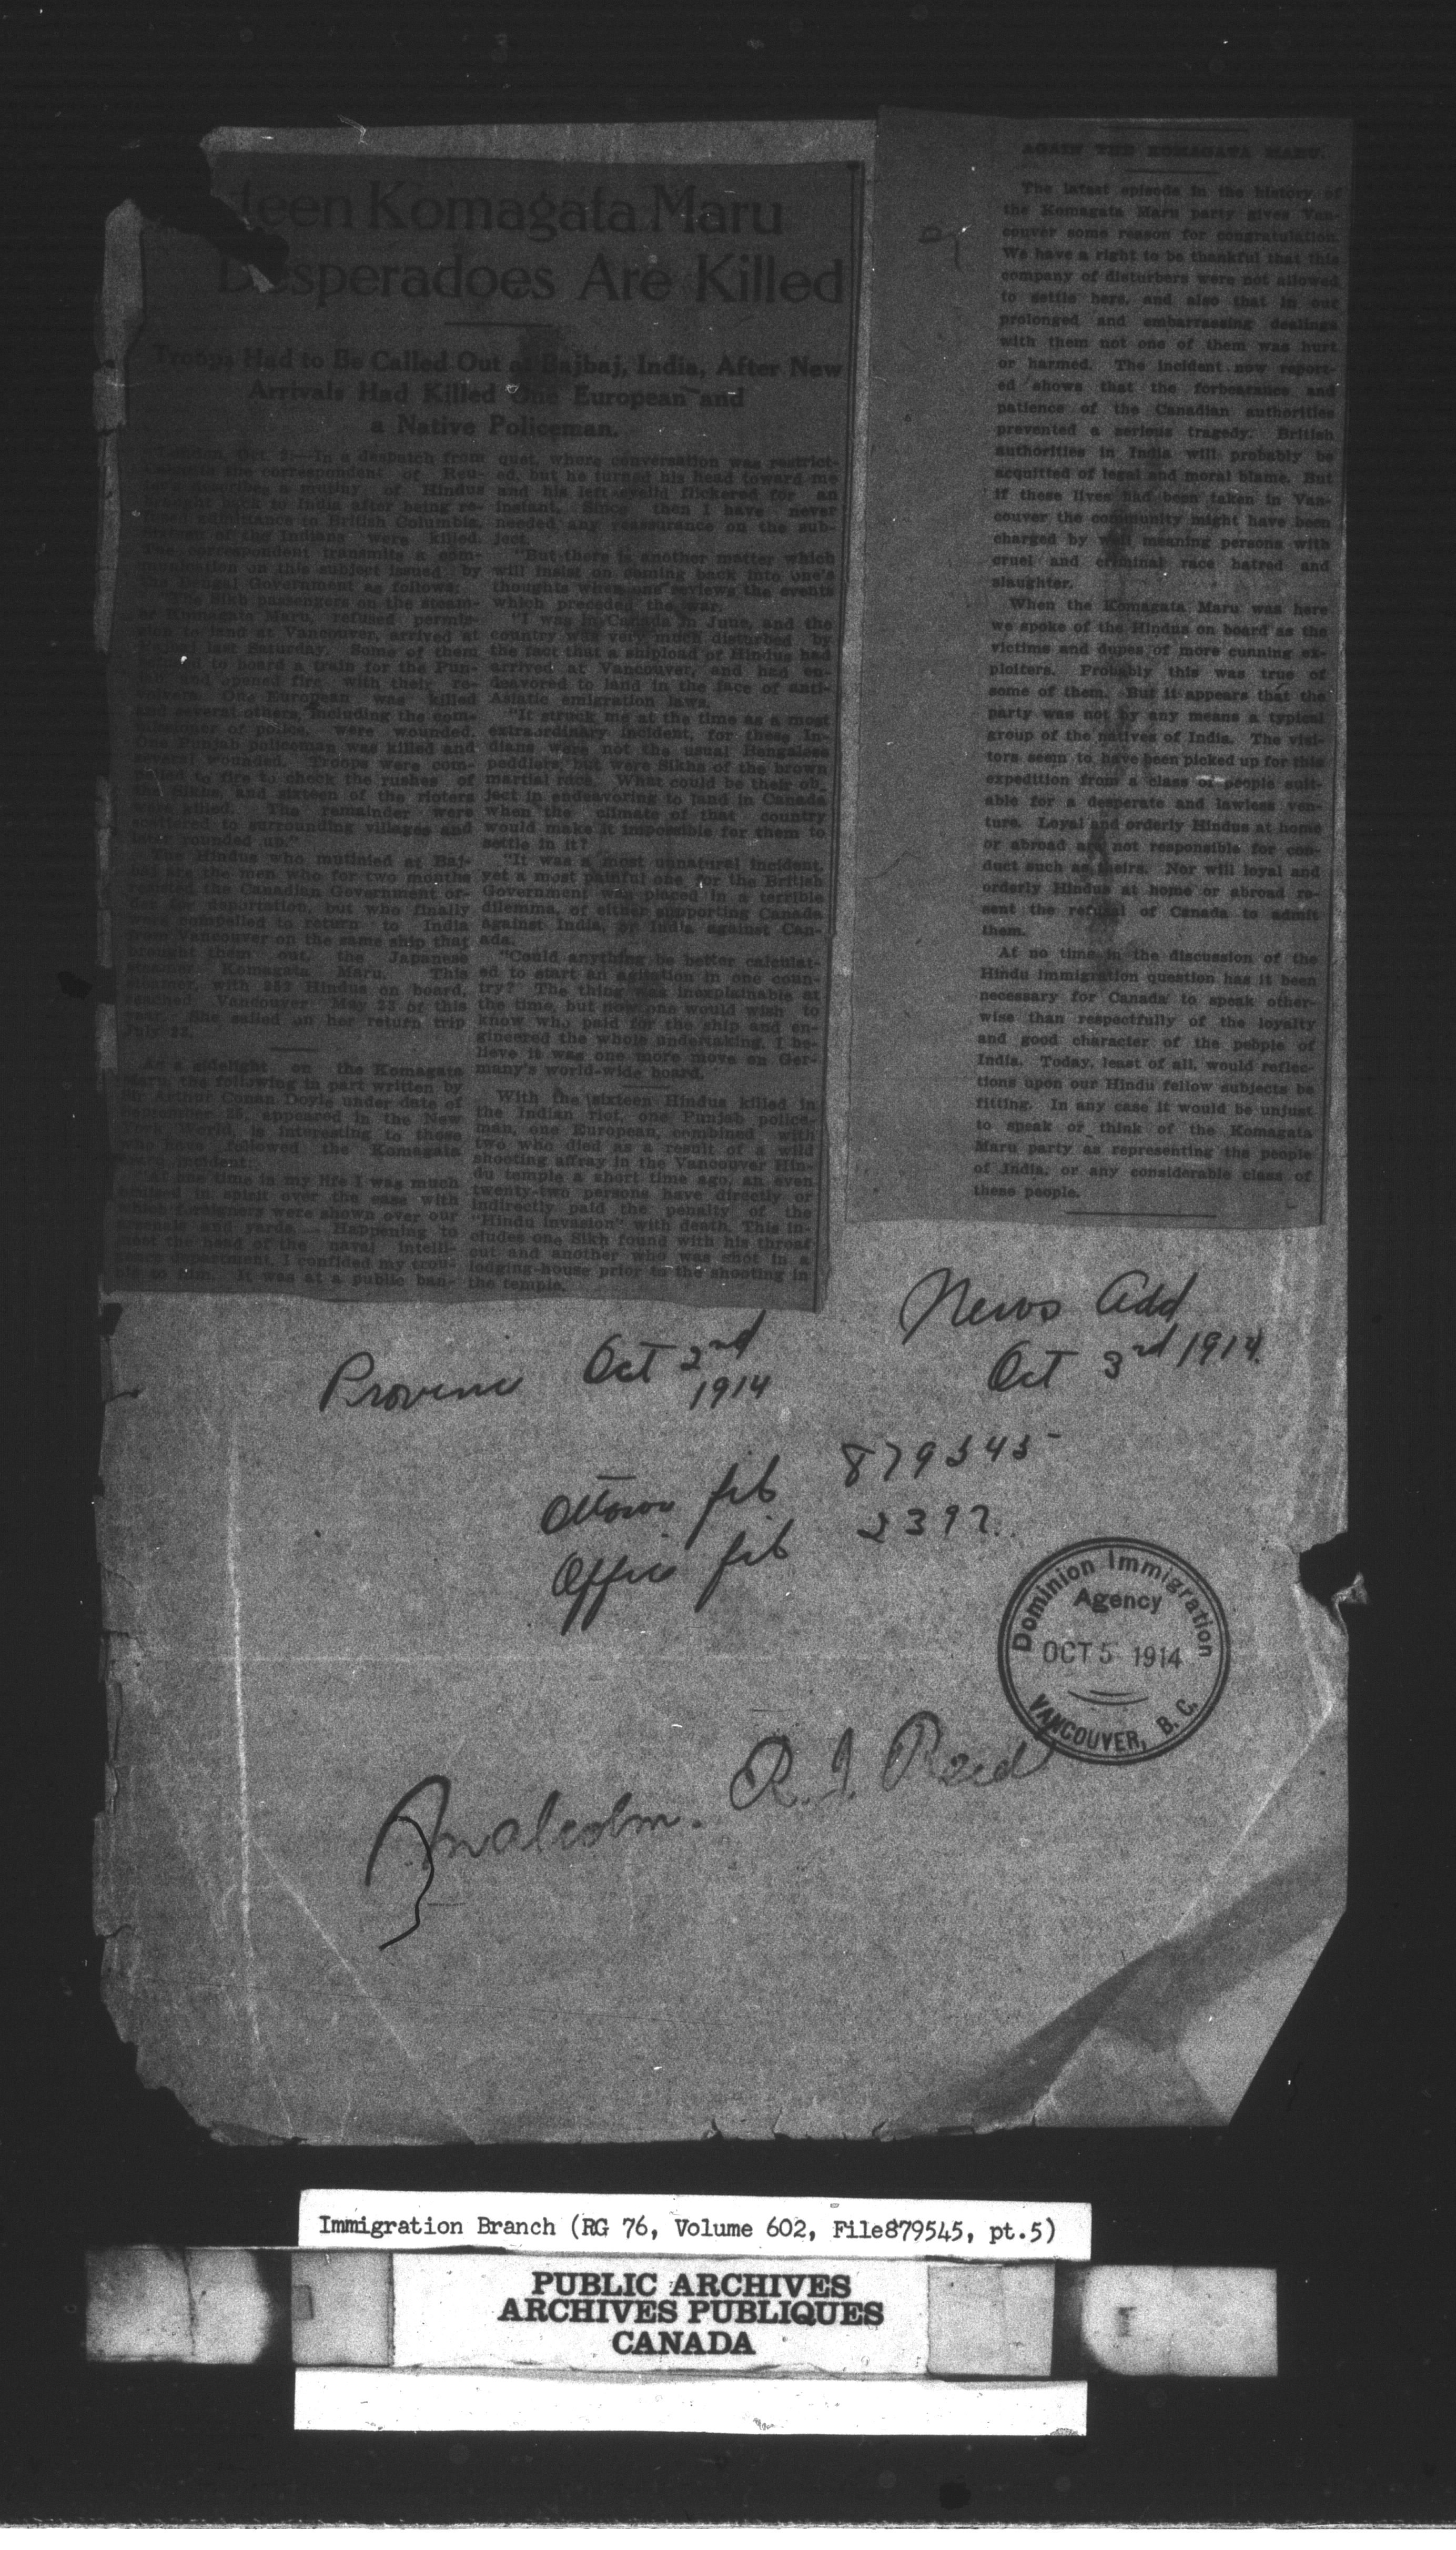 teen Komagata Maru
Desperadoes Are Killed
Troops Had to Be Called Out at Bajbaj, India, After New
Arrivals Had Killed One European and
a Native Policeman.
London, Oct. 2.—In a despatch from
Calcutta the correspondent of Reu-
ter's describes a mutiny of Hindus
brought back to India after being re-
fused admittance to British Columbia.
Sixteen of the Indians were killed.
The correspondent transmits a com-
munication on this subject issued by
the Bengal Government as follows:
"The Sikh passengers on the steam-
er Komagata Maru, refused permis-
sion to land at Vancouver, arrived at
Bajbaj last Saturday. Some of them
refused to board a train for the Pun-
jab and opened fire with their re-
volvers. One European was killed
and several others, including the com-
missioner of police, were wounded.
One Punjab policeman was killed and
several wounded. Troops were com-
pelled to fire to check the rushes of
the Sikhs, and sixteen of the rioters
were killed. The remainder were
scattered to surrounding villages and
later rounded up."
The Hindus who mutinied at Baj-
baj are the men who for two months
resisted the Canadian Government or-
der for deportation, but who finally
were compelled to return to India
from Vancouver on the same ship that
brought them out, the Japanese
steamer Komagata Maru. This
steamer, with 352 Hindus on board,
reached Vancouver May 23 of this
year. She sailed on her return trip
July 23.
As a sidelight on the Komagata
Maru, the following in part written by
Sir Arthur Conan Doyle under date of
September 25, appeared in the New
York World, is interesting to those
who have followed the Komagata
Maru incident:
"At one time in my life I was much
bruised in spirit over the ease with
which foreigners were shown over our
arsenals and yards.— Happening to
meet the head of the naval intelli-
gence department, I confided my trou-
ble to him. It was at a public ban-
quet, where conversation was restrict-
ed, but he turned his head toward me
and his left eyelid flickered for an
instant. Since then I have never
needed any reassurance on the sub-
ject.
"But there is another matter which
will insist on coming back into one's
thoughts when one reviews the events
which preceded the war.
"I was in Canada in June, and the
country was very much disturbed by
the fact that a shipload of Hindus had
arrived at Vancouver, and had en-
deavored to land in the face of anti-
Asiatic emigration laws.
"It struck me at the time as a most
extraordinary incident, for these In-
dians were not the usual Bengalese
peddlers, but were Sikhs of the brown
martial race. What could be their ob-
ject in endeavoring to land in Canada
when the climate of that country
would make it impossible for them to
settle in it?
"It was a most unnatural incident,
yet a most painful one for the British
Government was placed in a terrible
dilemma, of either supporting Canada
against India, or India against Can-
ada.
"Could anything be better calculat-
ed to start an agitation in one coun-
try? The thing was inexplainable at
the time, but now one would wish to
know who paid for the ship and en-
gineered the whole undertaking. I be-
lieve it was one more move on Ger-
many's world-wide board."
With the sixteen Hindus killed in
the Indian riot, one Punjab police-
man, one European, combined with
two who died as a result of a wild
shooting affray in the Vancouver Hin-
du temple a short time ago, an even
twenty-two persons have directly or
indirectly paid the penalty of the
"Hindu invasion" with death. This in-
cludes one Sikh found with his throat
cut and another who was shot in a
lodging-house prior to the shooting in
the temple.
AGAIN THE KOMAGATA MARU.
The latest episode in the history of
the Komagata Maru party gives Van-
couver some reason for congratulation.
We have a right to be thankful that this
company of disturbers were not allowed
to settle here, and also that in our
prolonged and embarrassing dealings
with them not one of them was hurt
or harmed. The incident now report-
ed shows that the forbearance and
patience of the Canadian authorities
prevented a serious tragedy. British
authorities in India will probably be
acquitted of legal and moral blame. But
if these lives had been taken in Van-
couver the community might have been
charged by well meaning persons with
cruel and criminal race hatred and
slaughter.
When the Komagata Maru was here
we spoke of the Hindus on board as the
victims and dupes of more cunning ex-
ploiters. Probably this was true of
some of them. But it appears that the
party was not by any means a typical
group of the natives of India. The visi-
tors seem to have been picked up for this
expedition from a class of people suit-
able for a desperate and lawless ven-
ture. Loyal and orderly Hindus at home
or abroad are not responsible for con-
duct such as theirs. Nor will loyal and
orderly Hindus at home or abroad re-
sent the refusal of Canada to admit
them.
At no time in the discussion of the
Hindu immigration question has it been
necessary for Canada to speak other-
wise than respectfully of the loyalty
and good character of the people of
India. Today, least of all, would reflec-
tions upon our Hindu fellow subjects be
fitting. In any case it would be unjust
to speak or think of the Komagata
Maru party as representing the people
of India, or any considerable class of
these people.
Province Oct 2nd
1914
News Add
Oct 3rd 1914.
Ottawa file 879545
Office file 2397.
Dominion Immigration
Agency
OCT 5 1914
VANCOUVER, B. C.
Malcolm. R. J. Reid
Immigration Branch (RG 76, Volume 602, File879545, pt.5)
PUBLIC ARCHIVES
ARCHIVES PUBLIQUES
CANADA